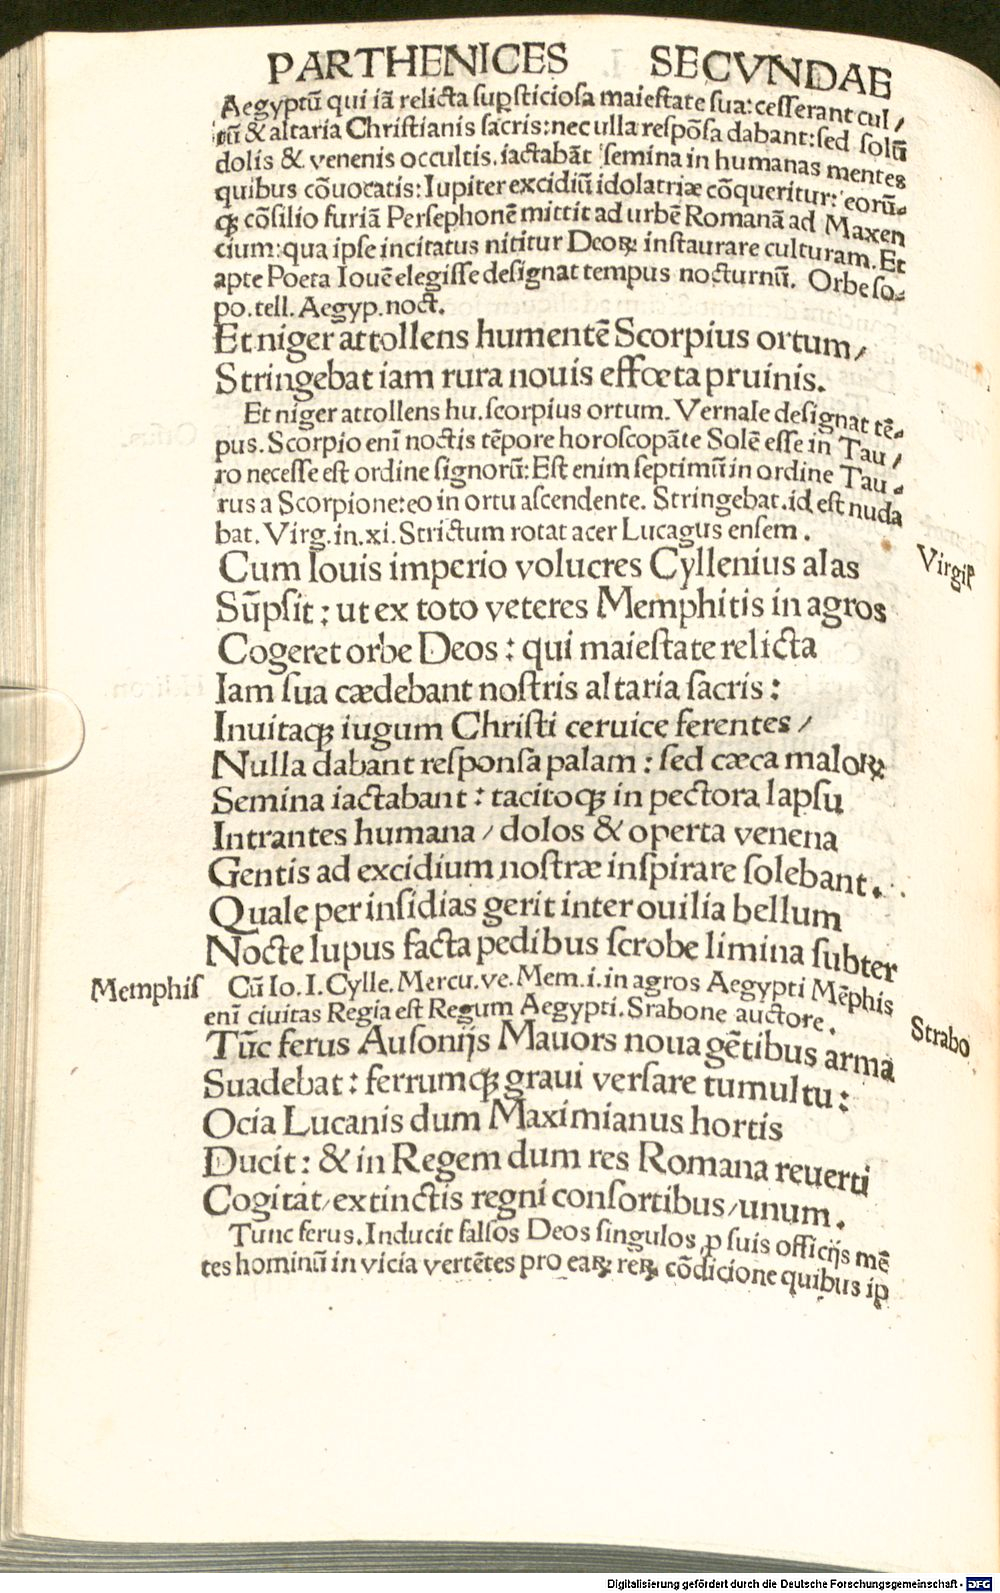 PARTHENICES SECVNDAE
Aegyptū qui iā relicta suꝑsticiosa maiestate sua: cesserant cul/
tū & altaria Christianis sacris: nec ulla respōsa dabant: sed solū
dolis & venenis occultis. iactabāt semina in humanas mentes
quibus cōuocatis: Iupiter excidiū idolatriæ cōqueritur: eorū-
qꝫ cōsilio furiā Persephonē mittit ad urbē Romanā ad Maxen
cium: qua ipse incitatus nititur Deoꝝ instaurare culturam. Et
apte Poeta Iouē elegisse designat tempus nocturnū. Orbe so-
po. tell. Aegyp. noct.
Et niger attollens humentē Scorpius ortum/
Stringebat iam rura nouis effœta pruinis.
Et niger attollens hu. scorpius ortum. Vernale designat tē-
pus. Scorpio enī noctis tēpore horoscopāte Solē esse in Tau/
ro necesse est ordine signorū: Est enim septimū in ordine Tau-
rus a Scorpione: eo in ortu ascendente. Stringebat. id est nuda
bat. Virg. in. xi. Strictum rotat acer Lucagus ensem.
Virgiꝉ
Cum Iouis imperio volucres Cyllenius alas
Sūpsit: ut ex toto veteres Memphitis in agros
Cogeret orbe Deos: qui maiestate relicta
Iam sua cædebant nostris altaria sacris:
Inuitaqꝫ iugum Christi ceruice ferentes/
Nulla dabant responsa palam: sed cæca maloꝝ
Semina iactabant: tacitoqꝫ in pectora lapsu
Intrantes humana/ dolos & operta venena
Gentis ad excidium nostræ inspirare solebant.
Quale per insidias gerit inter ouilia bellum
Nocte lupus facta pedibus scrobe limina subter
Memphis
Cū Io. I. Cylle. Mercu. ve. Mem. i. in agros Aegypti Mēphis
enī ciuitas Regia est Regum Aegypti. Srabone auctore.
Strabo
Tūc ferus Ausonijs Mauors noua gētibus arma
Suadebat: ferrumqꝫ graui versare tumultu:
Ocia Lucanis dum Maximianus hortis
Ducit: & in Regem dum res Romana reuerti
Cogitat/ extinctis regni consortibus/ unum.
Tunc ferus. Inducit falsos Deos singulos ꝓ suis officijs mē
tes hominū in vicia vertētes pro eaꝝ reꝝ cōdicione quibus ip
Digitalisierung gefördert durch die Deutsche Forschungsgemeinschaft - DFG